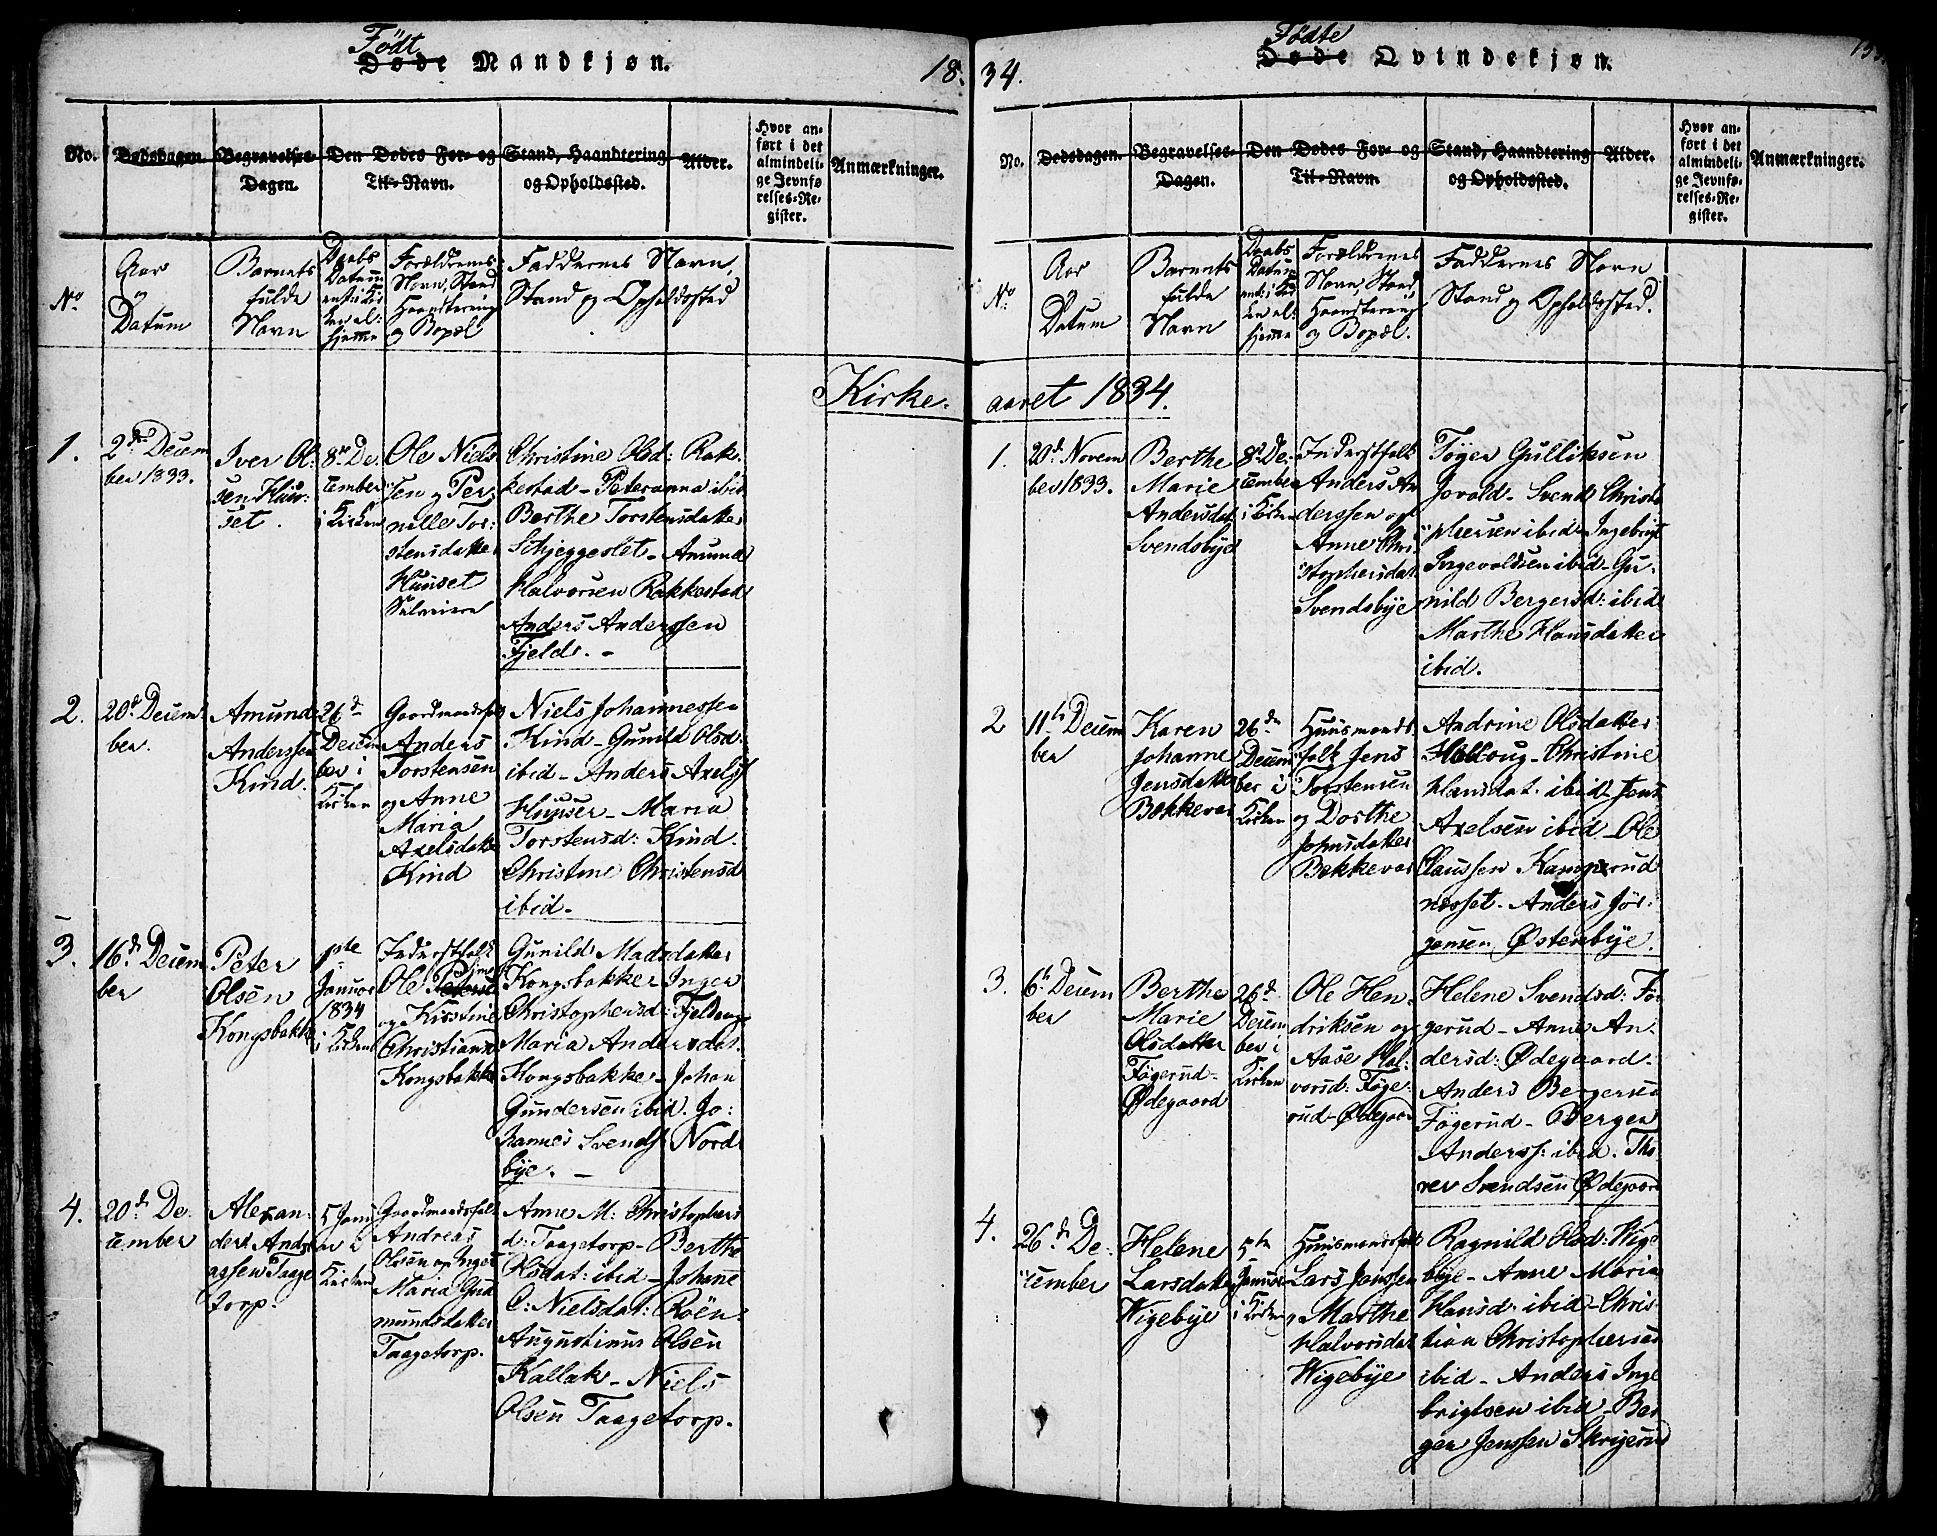 Født
Døde Mandkjøn.
18
No.
Dødsdagen.
Begravelses-
Dagen.
Den Dødes For- og
Til-Navn.
Stand, Haandtering
og Opholdssted.
Alder.
Hvor an-
ført i det
almindeli-
ge Jevnfø-
relses-Re-
gister.
Anmærkninger.
No
Aar
og
Datum
Barnets
fulde
Navn
Daabs
Datum
Forældrenes
Navn, Stand
Haandtering
og Bopæl
Faddernes Navn,
Stand og Opholdssted
Kirke-
1.
2de Decem
ber 1833.
Iver Ol-
sen Huu-
set.
8de De-
cember
i Kirken
Ole Niels
sen og Per-
nille Tor-
stensdatter
Huuset
Christine Olsd: Rak-
kestad - Peteranna ibid
Berthe Torstensdatter
Schjeggestet - Amund
Halvorsen Rakkestad
Anders Anderssen
Fjeld. -
2.
20de Decem
ber.
Amund
Anderssen
Kind.
26d
Decem
ber i
Kirken
Gaardmandsfolk
Anders
Torstensen
og Anne
Maria
Axelsdatter
Kind
Niels Johannessen
Kind - Gunild Olsd:
ibid - Anders Axels
Huuser - Maria
Torstensd: Kind.
Christine Christensd
ibid -
3.
16de Decem
ber
Peter
Olsen
Kongsbakke
1ste
Januar
1834
i Kirken
Inderstfolk
Ole
og Kirstine
Christians
Kongsbakke
Gunild Madsdatter
Kongsbakke - Inger
Christophersd: Fjeldeng
Maria Andersdat.
Kongsbakke - Johan
Gundersen ibid. Jo-
hannes Svends Nord
bye. -
4.
20de De-
cember
Alexan-
der Andre
assen Taage
torp.
5 Janu
ar i
Kirken
Gaardmandsfolk
Andreas
Olsen og Inger
Maria Gud
mundsdatter
Taagetorp.
Anne M: Christophers
d: Taagetorp - Berthe
Olsdat: ibid - Johanne
C: Nielsdat: Roën -
Augustinus Olsen
Kallak - Niels
Olsen Taagetorp.
Fødte
Døde Qvindekjøn.
34.
No.
Dødsdagen.
Begravelses-
Dagen.
Den Dødes For- og
Til-Navn.
Stand, Haandtering
og Opholdssted.
Alder.
Hvor an-
ført i det
almindeli-
ge Jevnfø-
relses-Re-
gister.
Anmærkninger.
No
Aar
og
Datum
Barnets
fulde
Navn
Daabs
Datum
Forældrenes
Navn, Stand,
Haandtering
og Bopæl.
Faddernes Navn
Stand og Opholdssted.
aaret 1834.
1.
20de Novem
ber 1833.
Berthe
Marie
Andersdat.
Svendsbye
8de De-
cember
i Kirken
Inderstfolk
Anders An
derssen og
Anne Chri
stophersdat.
Svendsbye
Tøger Gulliksen
Jovald - Svend Christo
phersen ibid - Ingebrigt
Ingevoldsen ibid - Gu-
nild Bergersd: ibid
Marthe Hansdatter
ibid.
2
11te Decem
ber
Karen
Johanne
Jensdatter
Bekkevar
26de
Decem
ber i
Kirken
Huusmands
folk Jens
Torstensen
og Dorthe
Johnsdatter
Bekkevar
Andrine Olsdatter
Holloug - Christine
Hansdat. ibid - Jens
Axelsen ibid - Ole
Claussen Kamperud
næsset - Anders Jør-
gensen Østenbye.
3.
6te Decem
ber
Berthe
Marie
Olsdatter
Føgerud-
Ødegaard
26de
Decem
ber i
Kirken
Ole Hen-
driksen og
Aase Hal-
vorsd: Føge-
rud-Ødegaar
Helene Svendsd: Fø-
gerud - Anne An-
dersd: Ødegaard.
Anders Bergersen
Føgerud - Berger
Anderss: ibid. Tho-
rer Svendsen Ødegaard
4.
26de De-
cember
Helene
Larsdatter
Wigebye
5te
Januar
i Kirken
Huusmandsfolk
Lars Janssen
og Marthe
Halvorsdat
Wigebye
Ragnild Olsd: Wige
bye - Anne Maria
Hansd: ibid - Chris-
tian Christophersen
ibid - Anders Inge
brigtsen ibid - Ber
ger Jenssen Skrigerud